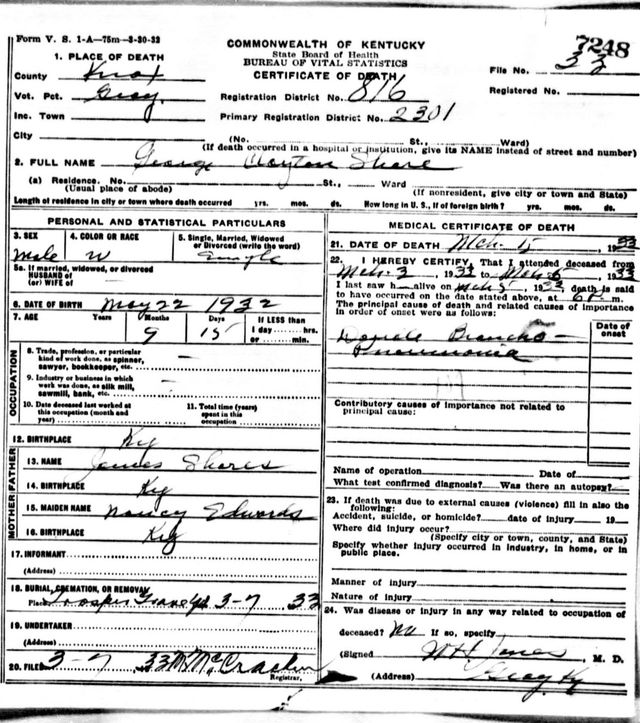 Form V. S. 1-A—75m—3-30-32
COMMONWEALTH OF KENTUCKY
State Board of Health
BUREAU OF VITAL STATISTICS
CERTIFICATE OF DEATH
7248
File No. 33
Registered No.
1. PLACE OF DEATH
County Knox
Vot. Pct. Gray
Inc. Town
City
Registration District No. 816
Primary Registration District No. 2301
(No. St., Ward)
(If death occurred in a hospital or institution, give its NAME instead of street and number)
2. FULL NAME George Clayton Shore
(a) Residence. No. St., Ward
(Usual place of abode) (If nonresident, give city or town and State)
Length of residence in city or town where death occurred yrs. mos. ds. How long in U. S., if of foreign birth? yrs. mos. ds.
PERSONAL AND STATISTICAL PARTICULARS
3. SEX 4. COLOR OR RACE 5. Single, Married, Widowed
or Divorced (write the word)
male W Single
5a. If married, widowed, or divorced
HUSBAND of
(or) WIFE of
6. DATE OF BIRTH May 22 1932
7. AGE Years Months Days If LESS than
1 day hrs.
or min.
9 15
OCCUPATION
8. Trade, profession, or particular
kind of work done, as spinner,
sawyer, bookkeeper, etc.
9. Industry or business in which
work was done, as silk mill,
sawmill, bank, etc.
10. Date deceased last worked at
this occupation (month and
year)
11. Total time (years)
spent in this
occupation
12. BIRTHPLACE Ky
FATHER
13. NAME James Shores
14. BIRTHPLACE Ky
MOTHER
15. MAIDEN NAME Nancy Edwards
16. BIRTHPLACE Ky
17. INFORMANT
(Address)
18. BURIAL, CREMATION, OR REMOVAL
Place Prosper Grave Yd 3-7 33
19. UNDERTAKER
(Address)
20. FILED 3-7 33 McCracken
Registrar.
MEDICAL CERTIFICATE OF DEATH
21. DATE OF DEATH Mch. 5, 1933
22. I HEREBY CERTIFY, That I attended deceased from
Mch. 3, 1933 to Mch 5, 1933
I last saw h alive on Mch 5, 1933, death is said
to have occurred on the date stated above, at 6 P. m.
The principal cause of death and related causes of importance
in order of onset were as follows:
Date of
onset
Double Broncho-
Pneumonia
Contributory causes of importance not related to
principal cause:
Name of operation Date of
What test confirmed diagnosis? Was there an autopsy?
23. If death was due to external causes (violence) fill in also the
following:
Accident, suicide, or homicide? date of injury 19
Where did injury occur?
(Specify city or town, county, and State)
Specify whether injury occurred in industry, in home, or in
public place.
Manner of injury
Nature of injury
24. Was disease or injury in any way related to occupation of
deceased? no If so, specify
(Signed) W H Jones, M. D.
(Address) Gray Ky